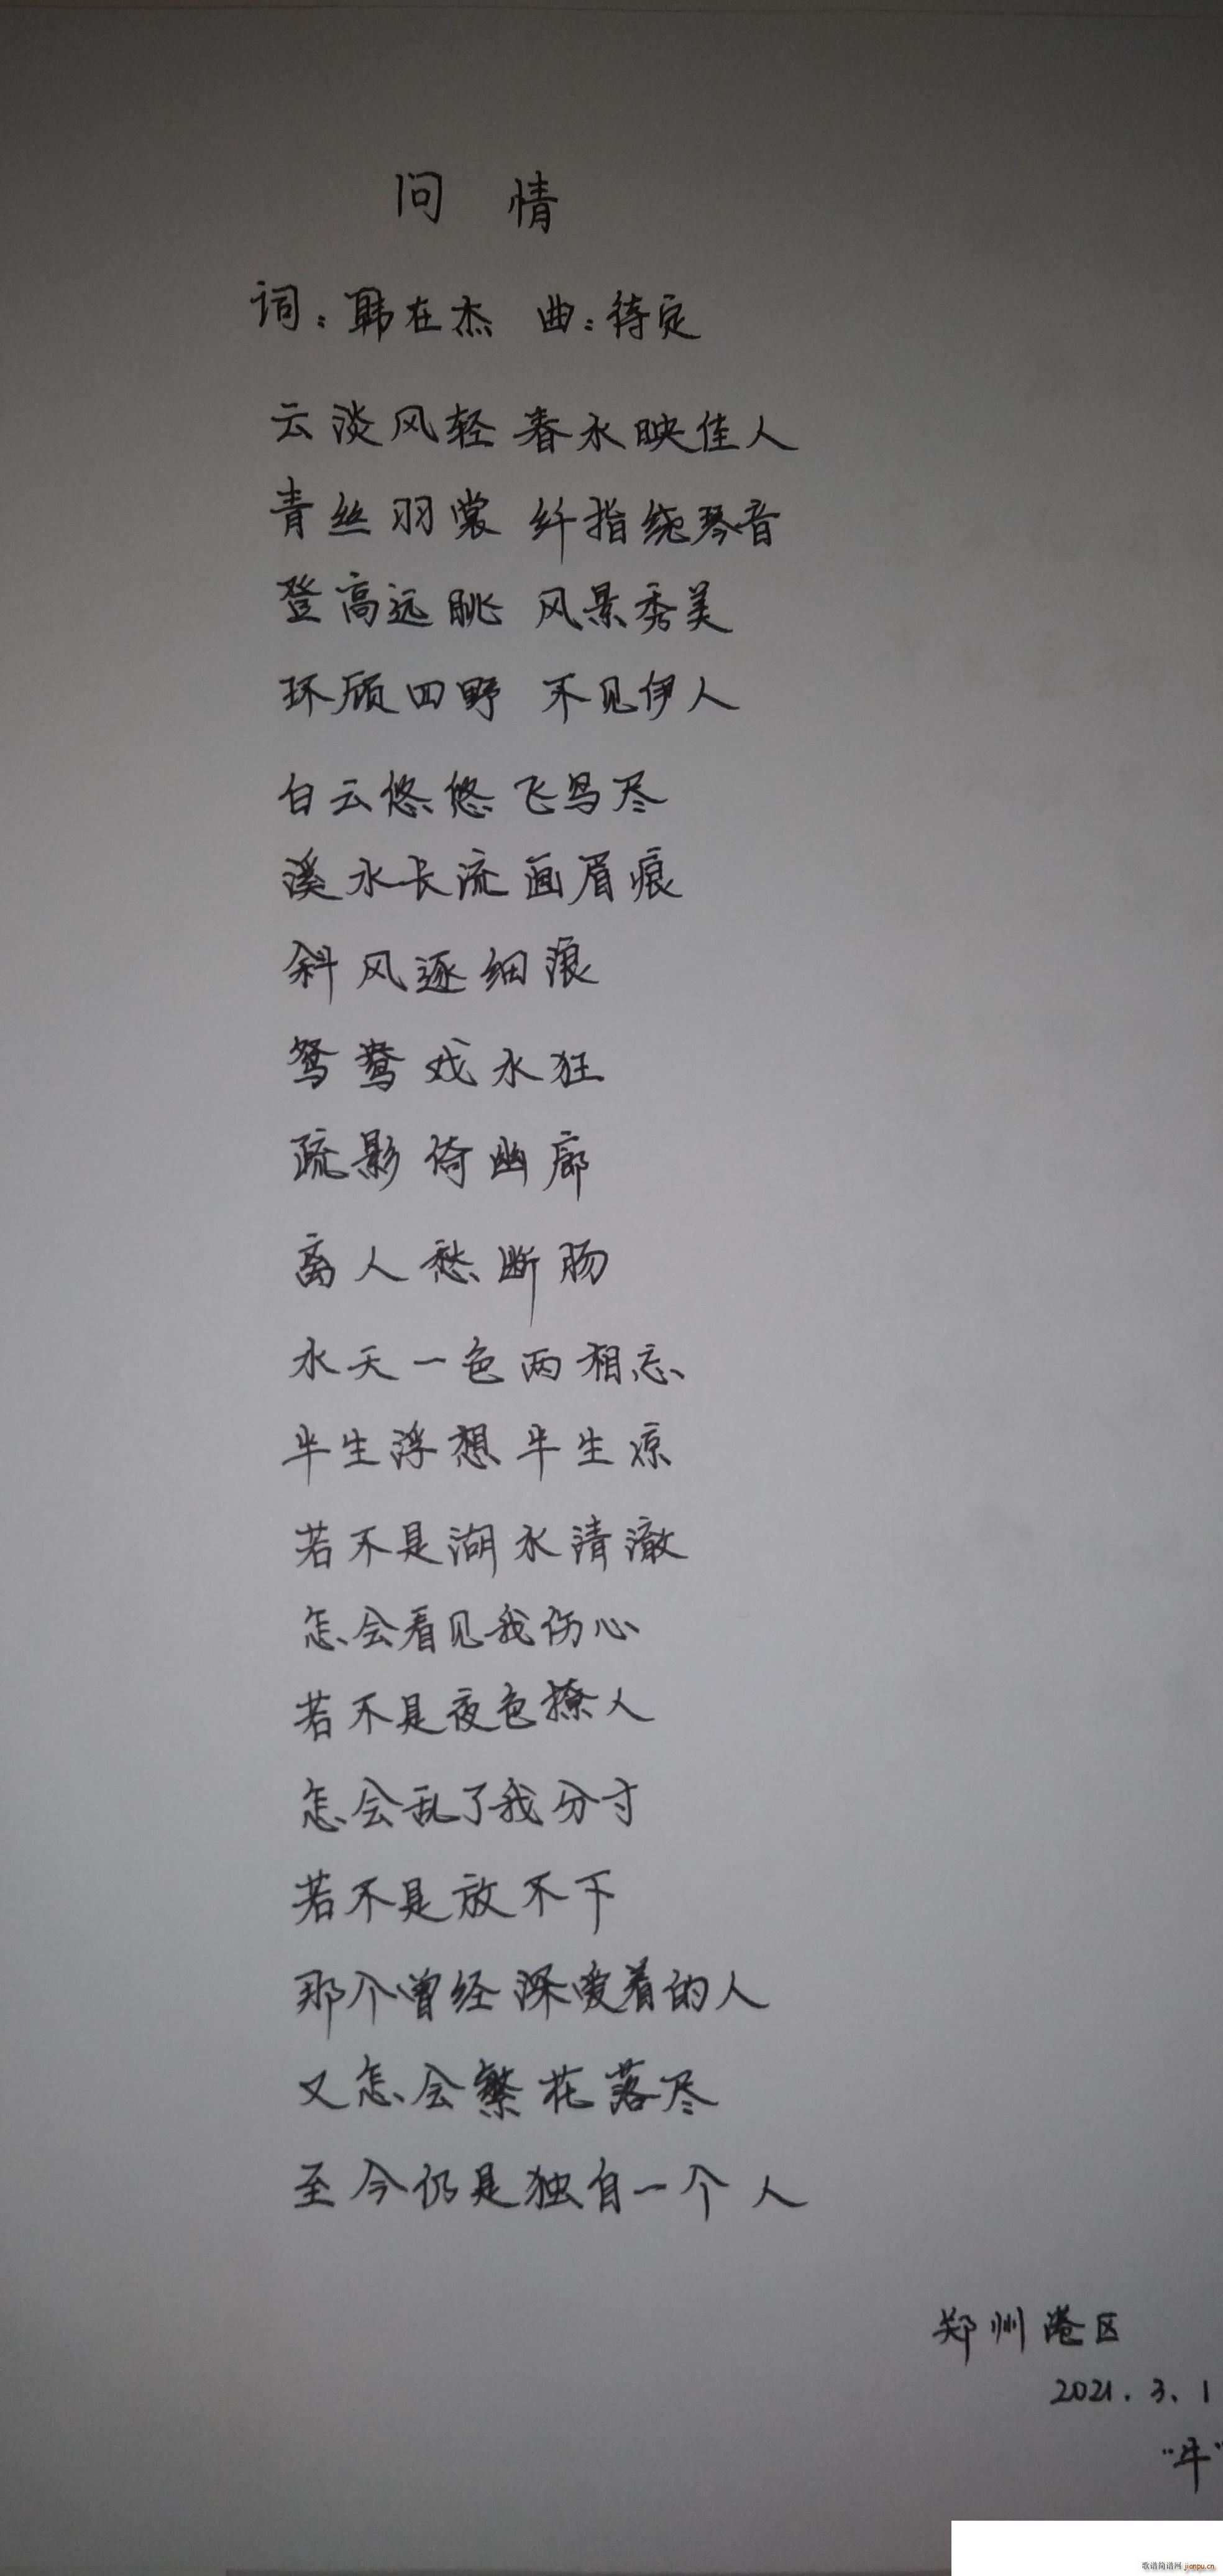 问 情
词：韩在杰 曲：待定
云淡风轻 春水映佳人
青丝羽裳 纤指绕琴音
登高远眺 风景秀美
环顾四野 不见伊人
白云悠悠飞鸟尽
溪水长流画眉痕
斜风逐细浪
鸳鸯戏水狂
疏影倚幽廊
离人愁断肠
水天一色两相忘
半生浮想半生凉
若不是湖水清澈
怎会看见我伤心
若不是夜色撩人
怎会乱了我分寸
若不是放不下
那个曾经深爱着的人
又怎会繁花落尽
至今仍是独自一个人
郑州港区
2021.3.1
"牛"
歌谱简谱网 jianpu.cn